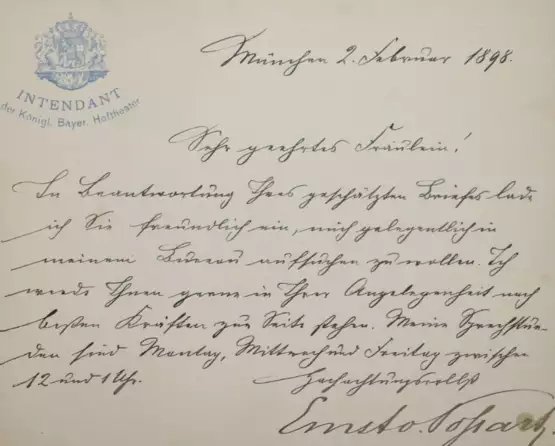 INTENDANT
der Königl. Bayer. Hoftheater
München 2. Februar 1898.
Sehr geehrtes Fräulein!
In Beantwortung Ihres geschätzten Briefes lade
ich Sie freundlich ein, mich gelegentlich in
meinem Bureau aufsuchen zu wollen. Ich
werde Ihnen gerne in Ihrer Angelegenheit nach
besten Kräften zur Seite stehen. Meine Sprechstun-
den sind Montag, Mittwoch und Freitag zwischen
12 und 1 Uhr. Hochachtungsvollst
Ernst v. Possart.